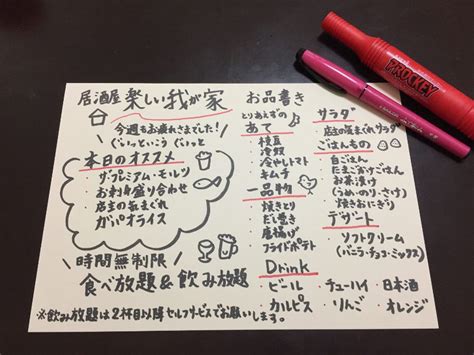 居酒屋 楽しい我が家
今週もお疲れさまでした!
ぐいっといこう ぐいっと
本日のオススメ
・ザ・プレミアム・モルツ
・お刺身盛り合わせ
・店主の気まぐれ
ガパオライス
時間無制限
食べ放題&飲み放題
お品書き
とりあえずの
あて
・枝豆
・冷奴
・冷やしトマト
・キムチ
一品物
・焼きとり
・だし巻き
・唐揚げ
・フライドポテト
サラダ
・店主の気まぐれサラダ
ごはんもの
・白ごはん
・たまごかけごはん
・お茶漬け
(うめ・のり・さけ)
・焼きおにぎり
デザート
・ソフトクリーム
(バニラ・チョコ・ミックス)
Drink
・ビール ・チューハイ ・日本酒
・カルピス ・りんご ・オレンジ
※飲み放題は2杯目以降セルフサービスでお願いします。
PROCKEY